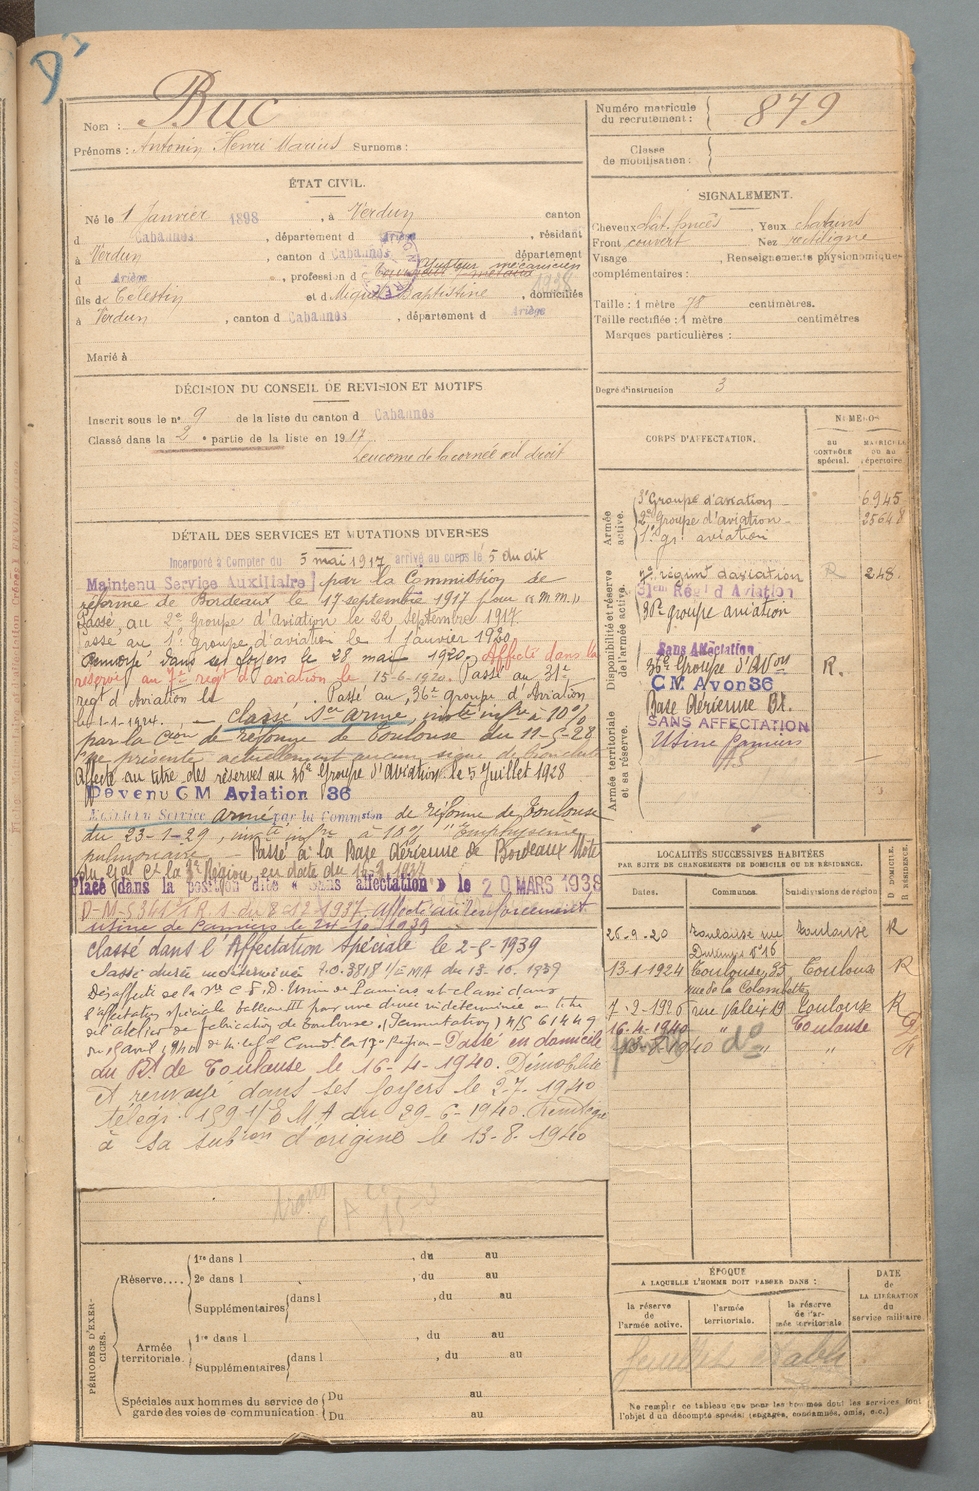 Nom : Buc
Prénoms : Antonin Henri Marius Surnoms :
Numéro matricule du recrutement : 879
Classe de mobilisation :
ÉTAT CIVIL.
Né le 1 Janvier 1898, à Verdun canton
d Cabannes, département d Ariège, résidant
à Verdun, canton d Cabannes département
d Ariège, profession d Ajusteur mécanicien
fils de Celestin et d Baptistine, domiciliés
à Verdun, canton d Cabannes, département d Ariège
Marié à
SIGNALEMENT.
Cheveux chât. foncés Yeux chatains
Front couvert Nez rectiligne
Visage Renseignements physionomiques
complémentaires :
Taille : 1 mètre 78 centimètres.
Taille rectifiée : 1 mètre centimètres
Marques particulières :
Degré d'instruction 3
DÉCISION DU CONSEIL DE REVISION ET MOTIFS
Inscrit sous le n° 9 de la liste du canton d Cabannes
Classé dans la 2e partie de la liste en 1917
Leucome de la cornée œil droit
DÉTAIL DES SERVICES ET MUTATIONS DIVERSES
Incorporé à Compter du 5 mai 1917 arrivé au corps le 5 du dit
Maintenu Service Auxiliaire par la Commission de
réforme de Bordeaux le 17 septembre 1917 pour "m.m."
Passé au 2e Groupe d'Aviation le 22 septembre 1917.
Passé au 1er groupe d'aviation le 1 janvier 1920
Renvoyé dans ses foyers le 28 mai 1920. Affecté dans la
réserve au 7e regt d'aviation le 15-6-1920. Passé au 31e
regt d'Aviation le Passé au 36e groupe d'Aviation
le 1-1-1924. — classé Sce armé, invté infre à 10%
par la Cion de réforme de Toulouse du 11-5-28
ne présente actuellement aucun signe de bronchite
Affecté au titre des réserves au 36e Groupe d'Aviation le 5 Juillet 1928
Devenu CM Aviation 36
Maintenu Service armé par la Commission de réforme de Toulouse
du 23-1-29, invté infre à 10% "Emphysème
pulmonaire — Passé à la Base Aérienne de Bordeaux Note
du Gal Ct la Région, en date du
Placé dans la position dite « Sans affectation » le 20 MARS 1938
D-M-5341 1/E.R.1. du 8-12-1937. Affecté au renforcement
Usine de Pamiers le 24-10-1939
Classé dans l'Affectation Spéciale le 2-9-1939
Passé durée indéterminée T.O. 3818 1/EMA du 13-10-1939
Désaffecté de la Sté C.F.D. Usine de Pamiers et classé dans
l'affectation spéciale tableau III pour une durée indéterminée au titre
de l'atelier de fabrication de Toulouse, (Permutation) N/S 61449
du 15 avril 1940 de M. le Gl Comdt la 17e Région — Passé en domicile
du Rt de Toulouse le 16-4-1940. Démobilisé
et renvoyé dans ses foyers le 2-7-1940
télégr. 1591/E M A du 29-6-1940. Réintégré
à sa subon d'origine le 13-8-1940
CORPS D'AFFECTATION.
NUMÉROS
AU CONTRÔLE spécial.
MATRICULE OU AU répertoire
Armée active.
3e Groupe d'aviation 6945
2e Groupe d'aviation 25648
1er gr. aviation
Disponibilité et réserve de l'armée active.
7e régimt d'aviation R 248
31eme Régt d'Aviation
36e groupe aviation
Sans Affectation
36e Groupe d'Avon R.
CM Avon 36
Base Aérienne Bx.
Armée territoriale et sa réserve.
SANS AFFECTATION
Usine Pamiers
AS
LOCALITÉS SUCCESSIVES HABITÉES
PAR SUITE DE CHANGEMENTS DE DOMICILE OU DE RÉSIDENCE.
Dates. Communes. Subdivisions de région D DOMICILE. R RÉSIDENCE.
26-9-20 Toulouse rue n°16 Toulouse R
13-1-1924 Toulouse, 35 rue de la Colombette Toulouse R
7-2-1926 rue Valeix 19 Toulouse R
16-4-1940 " Toulouse
13-8-1940 do " "
PÉRIODES D'EXERCICES.
Réserve.... 1re dans l , du au
2e dans l , du au
Supplémentaires dans l , du au
Armée territoriale. 1re dans l , du au
Supplémentaires dans l , du au
Spéciales aux hommes du service de garde des voies de communication. Du au
Du au
ÉPOQUE
A LAQUELLE L'HOMME DOIT PASSER DANS :
la réserve de l'armée active.
l'armée territoriale.
la réserve de l'armée territoriale.
DATE de LA LIBÉRATION du service militaire
Ne remplir ce tableau que pour les hommes dont les services font
l'objet d'un décompte spécial (engagés, condamnés, omis, etc.)